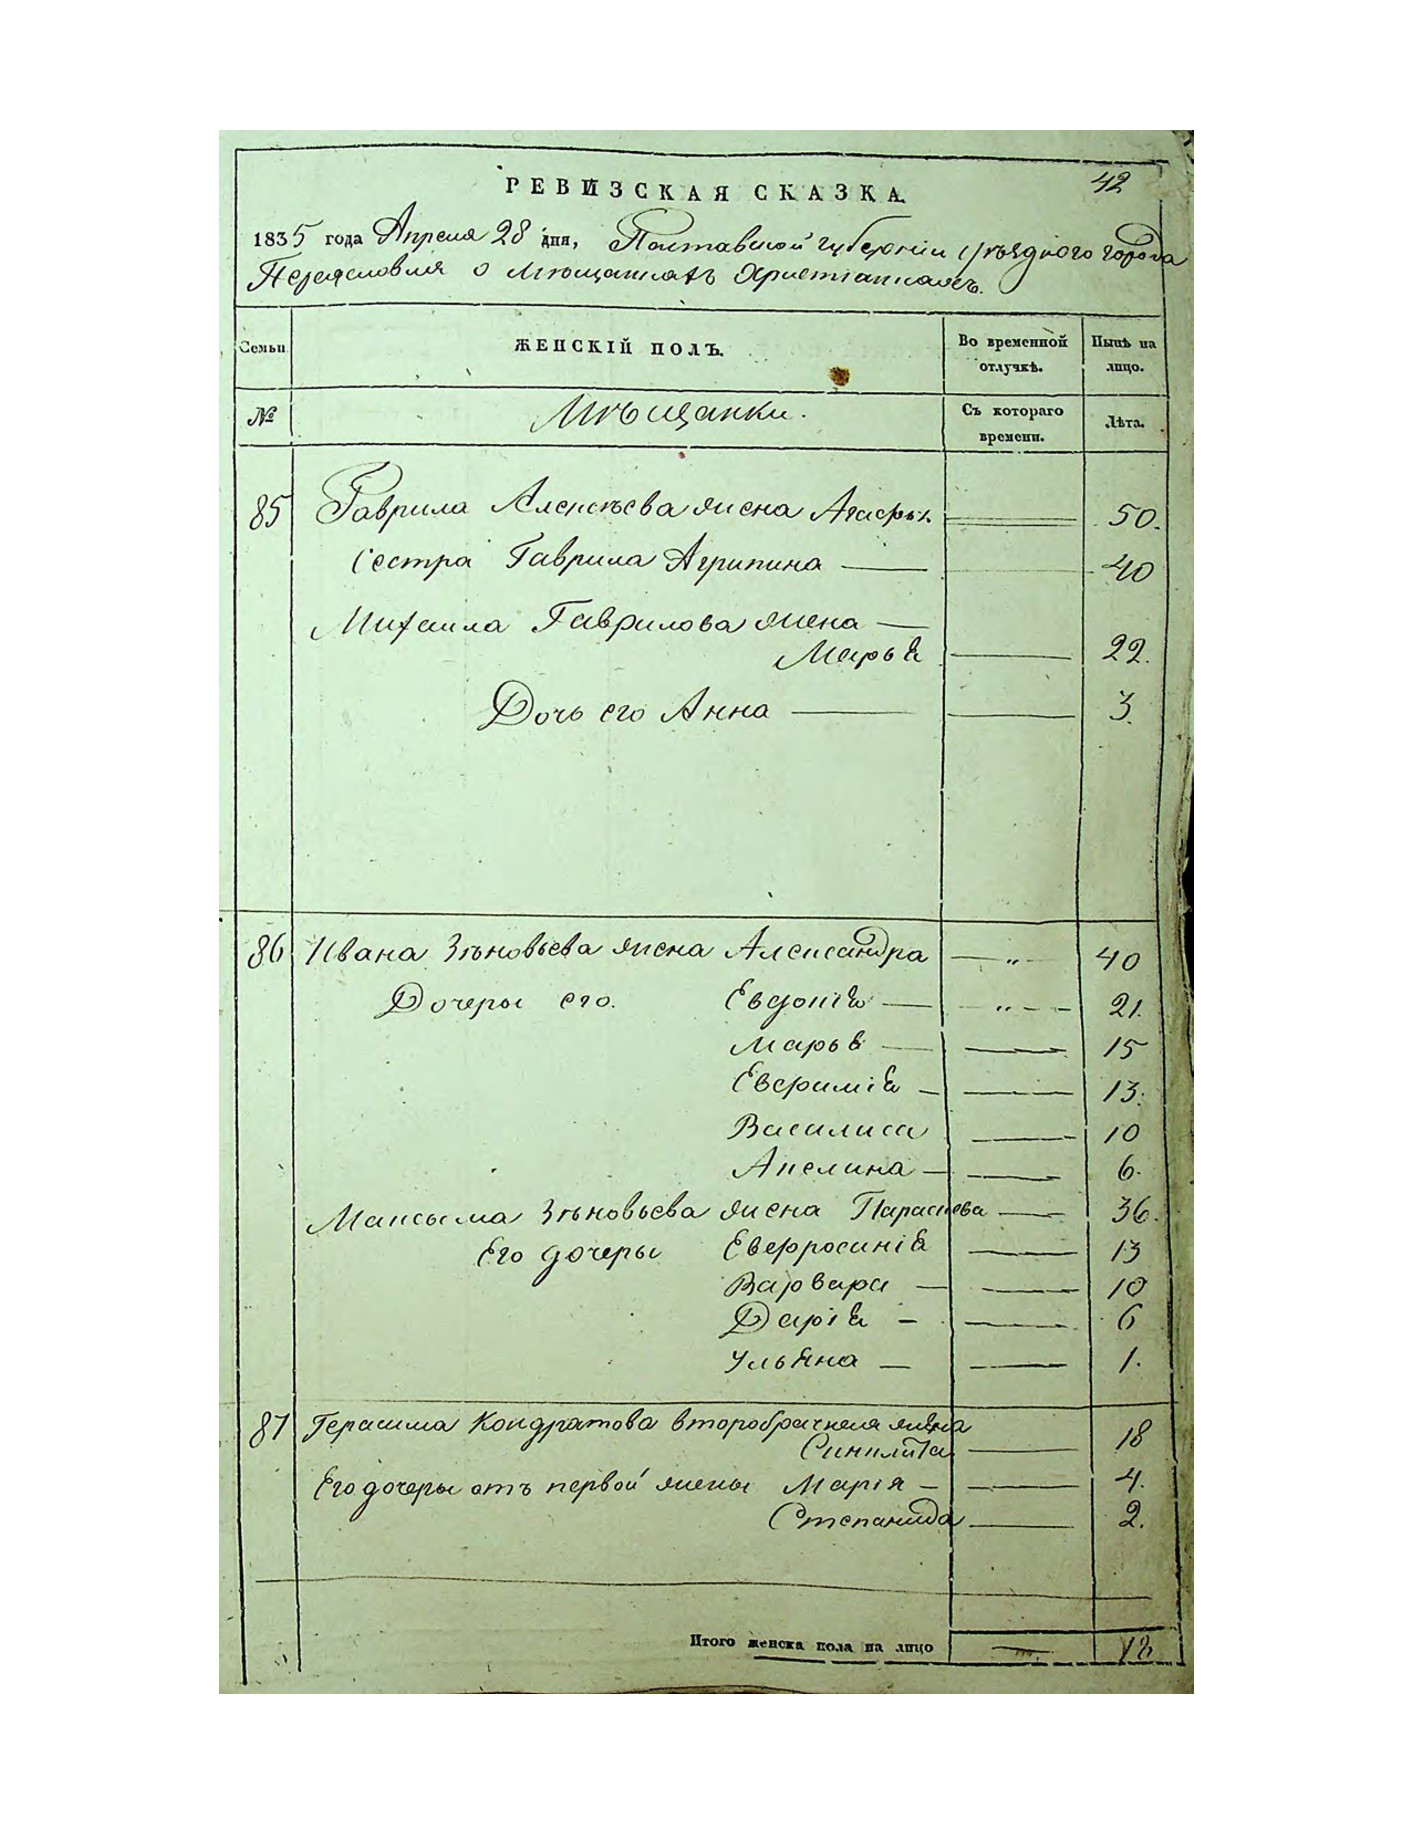 42
РЕВИЗСКАЯ СКАЗКА.
1835 года Апреля 28 дня, Полтавской губернии Уѣзднаго города
Переяславля о Мѣщанахъ Христіанахъ.
Семьи ЖЕНСКІЙ ПОЛЪ. Во временной отлучкѣ. Нынѣ на лицо.
№ Мѣщанки. Съ котораго времени. Лѣта.
85 Гаврила Алексѣева жена Агафья 50.
Сестра Гаврила Агрипина 40
Михаила Гаврилова жена
Марья 22.
Дочь его Анна 3.
86 Ивана Зѣновьева жена Александра „ 40
Дочеры его. Евдокія „ 21.
Марья 15
Евфимія 13.
Василиса 10
Акелина 6.
Максыма Зѣновьева жена Параскева 36.
Его дочеры Евфросинія 13
Варвара 10
Дарія 6
Ульяна 1.
87 Герасима Кондратова второбрачная жена
Синклита 18
Его дочеры отъ первой жены Марія 4.
Степанида 2.
Итого женска пола на лицо 18.